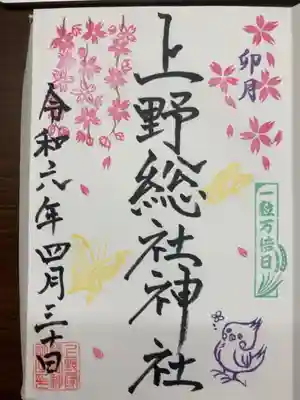 卯月
一粒万倍日
上野総社神社
令和六年四月三十日